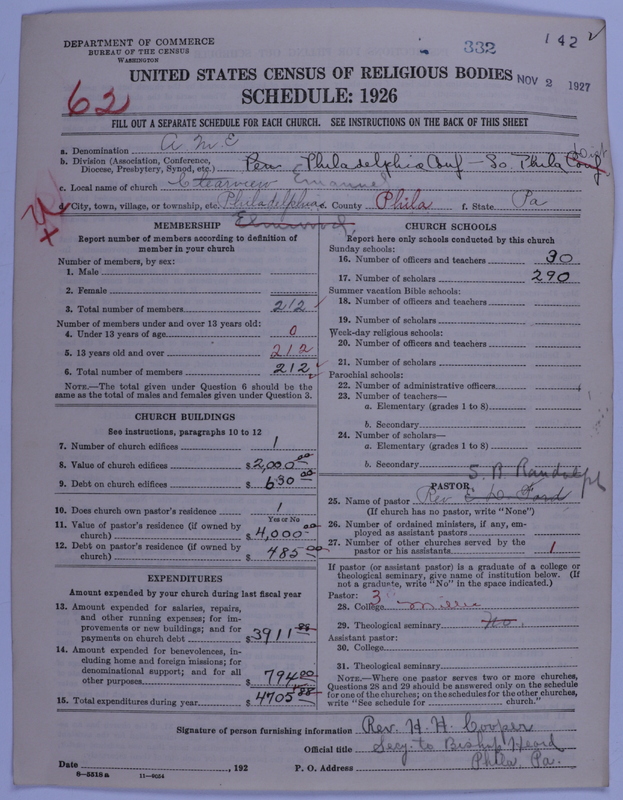 DEPARTMENT OF COMMERCE
BUREAU OF THE CENSUS
WASHINGTON
332
142
UNITED STATES CENSUS OF RELIGIOUS BODIES
NOV 2 1927
62
SCHEDULE: 1926
FILL OUT A SEPARATE SCHEDULE FOR EACH CHURCH. SEE INSTRUCTIONS ON THE BACK OF THIS SHEET
a. Denomination A M E
b. Division (Association, Conference, Diocese, Presbytery, Synod, etc.) Philadelphia Conf - So. Phila Conf Dist
c. Local name of church Clearview Emanuel
d. City, town, village, or township, etc. Philadelphia e. County Phila f. State Pa
Elmwood
MEMBERSHIP
Report number of members according to definition of member in your church
Number of members, by sex:
1. Male
2. Female
3. Total number of members 212
Number of members under and over 13 years old:
4. Under 13 years of age 0
5. 13 years old and over 212
6. Total number of members 212
NOTE.—The total given under Question 6 should be the same as the total of males and females given under Question 3.
CHURCH BUILDINGS
See instructions, paragraphs 10 to 12
7. Number of church edifices 1
8. Value of church edifices $ 2,000 00
9. Debt on church edifices $ 630 00
10. Does church own pastor's residence 1
Yes or No
11. Value of pastor's residence (if owned by church) $ 4,000 00
12. Debt on pastor's residence (if owned by church) $ 485 00
EXPENDITURES
Amount expended by your church during last fiscal year
13. Amount expended for salaries, repairs, and other running expenses; for improvements or new buildings; and for payments on church debt $ 3911 88
14. Amount expended for benevolences, including home and foreign missions; for denominational support; and for all other purposes $ 794 00
15. Total expenditures during year $ 4705 88
CHURCH SCHOOLS
Report here only schools conducted by this church
Sunday schools:
16. Number of officers and teachers 30
17. Number of scholars 290
Summer vacation Bible schools:
18. Number of officers and teachers
19. Number of scholars
Week-day religious schools:
20. Number of officers and teachers
21. Number of scholars
Parochial schools:
22. Number of administrative officers
23. Number of teachers—
a. Elementary (grades 1 to 8)
b. Secondary
24. Number of scholars—
a. Elementary (grades 1 to 8)
b. Secondary
S. B. Randolph
PASTOR
25. Name of pastor Rev E. W. Ford
(If church has no pastor, write "None")
26. Number of ordained ministers, if any, employed as assistant pastors
27. Number of other churches served by the pastor or his assistants 1
If pastor (or assistant pastor) is a graduate of a college or theological seminary, give name of institution below. (If not a graduate, write "No" in the space indicated.)
Pastor: 3
28. College
29. Theological seminary No.
Assistant pastor:
30. College
31. Theological seminary
NOTE.—Where one pastor serves two or more churches, Questions 28 and 29 should be answered only on the schedule for one of the churches; on the schedules for the other churches, write "See schedule for church."
Signature of person furnishing information Rev. H. H. Cooper
Official title Secy. to Bishop Heard
Date , 192 P. O. Address Phila. Pa.
8-5518a 11-9054